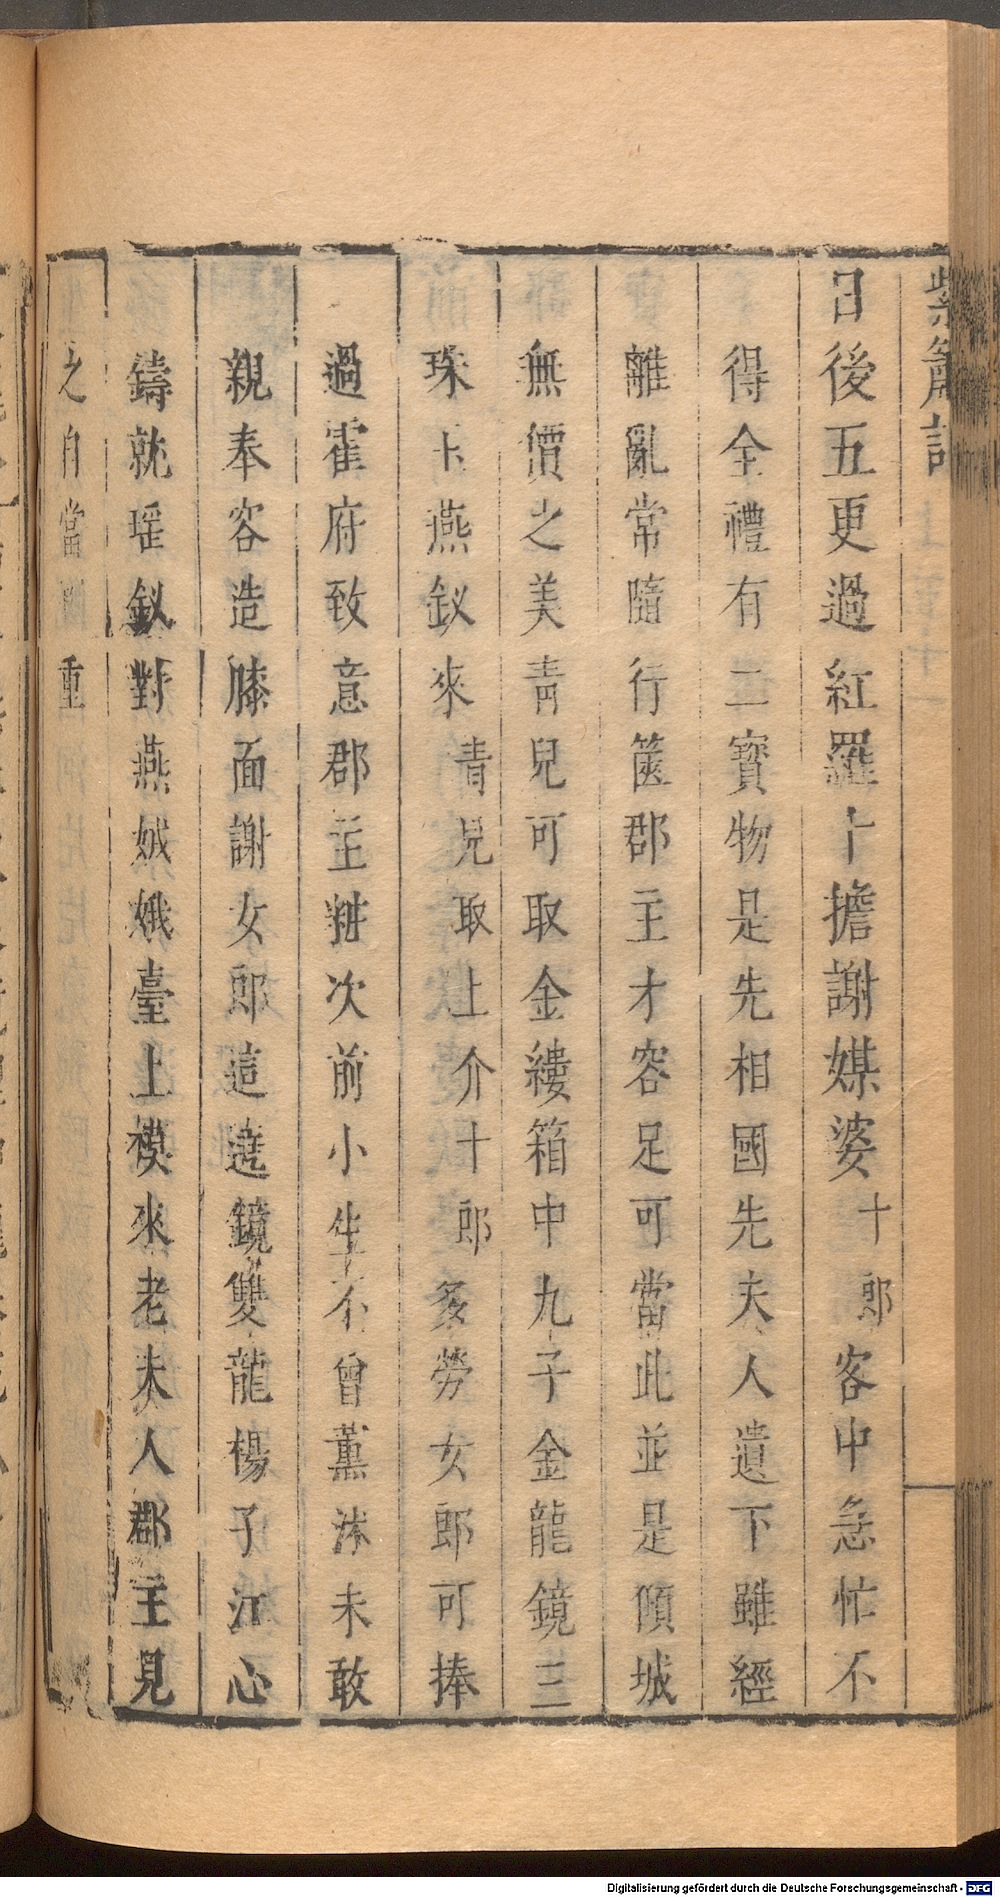 紫簫記
日後五更過紅羅十擔謝媒婆十郎客中急忙不
得全禮有二寶物是先相國先夫人遺下雖經
離亂常隨行篋郡主才容足可當此並是傾城
無價之美青兒可取金縷箱中九子金龍鏡三
珠玉燕釵來青兒取上介十郎多勞女郎可捧
過霍府致意郡主粧次前小生不曾薰沐未敢
親奉容造膝面謝女郎這遶鏡雙龍楊子江心
鑄就瑶釵對燕娀娥臺上模來老夫人郡主見
之自當 重
Digitalisierung gefördert durch die Deutsche Forschungsgemeinschaft - DFG